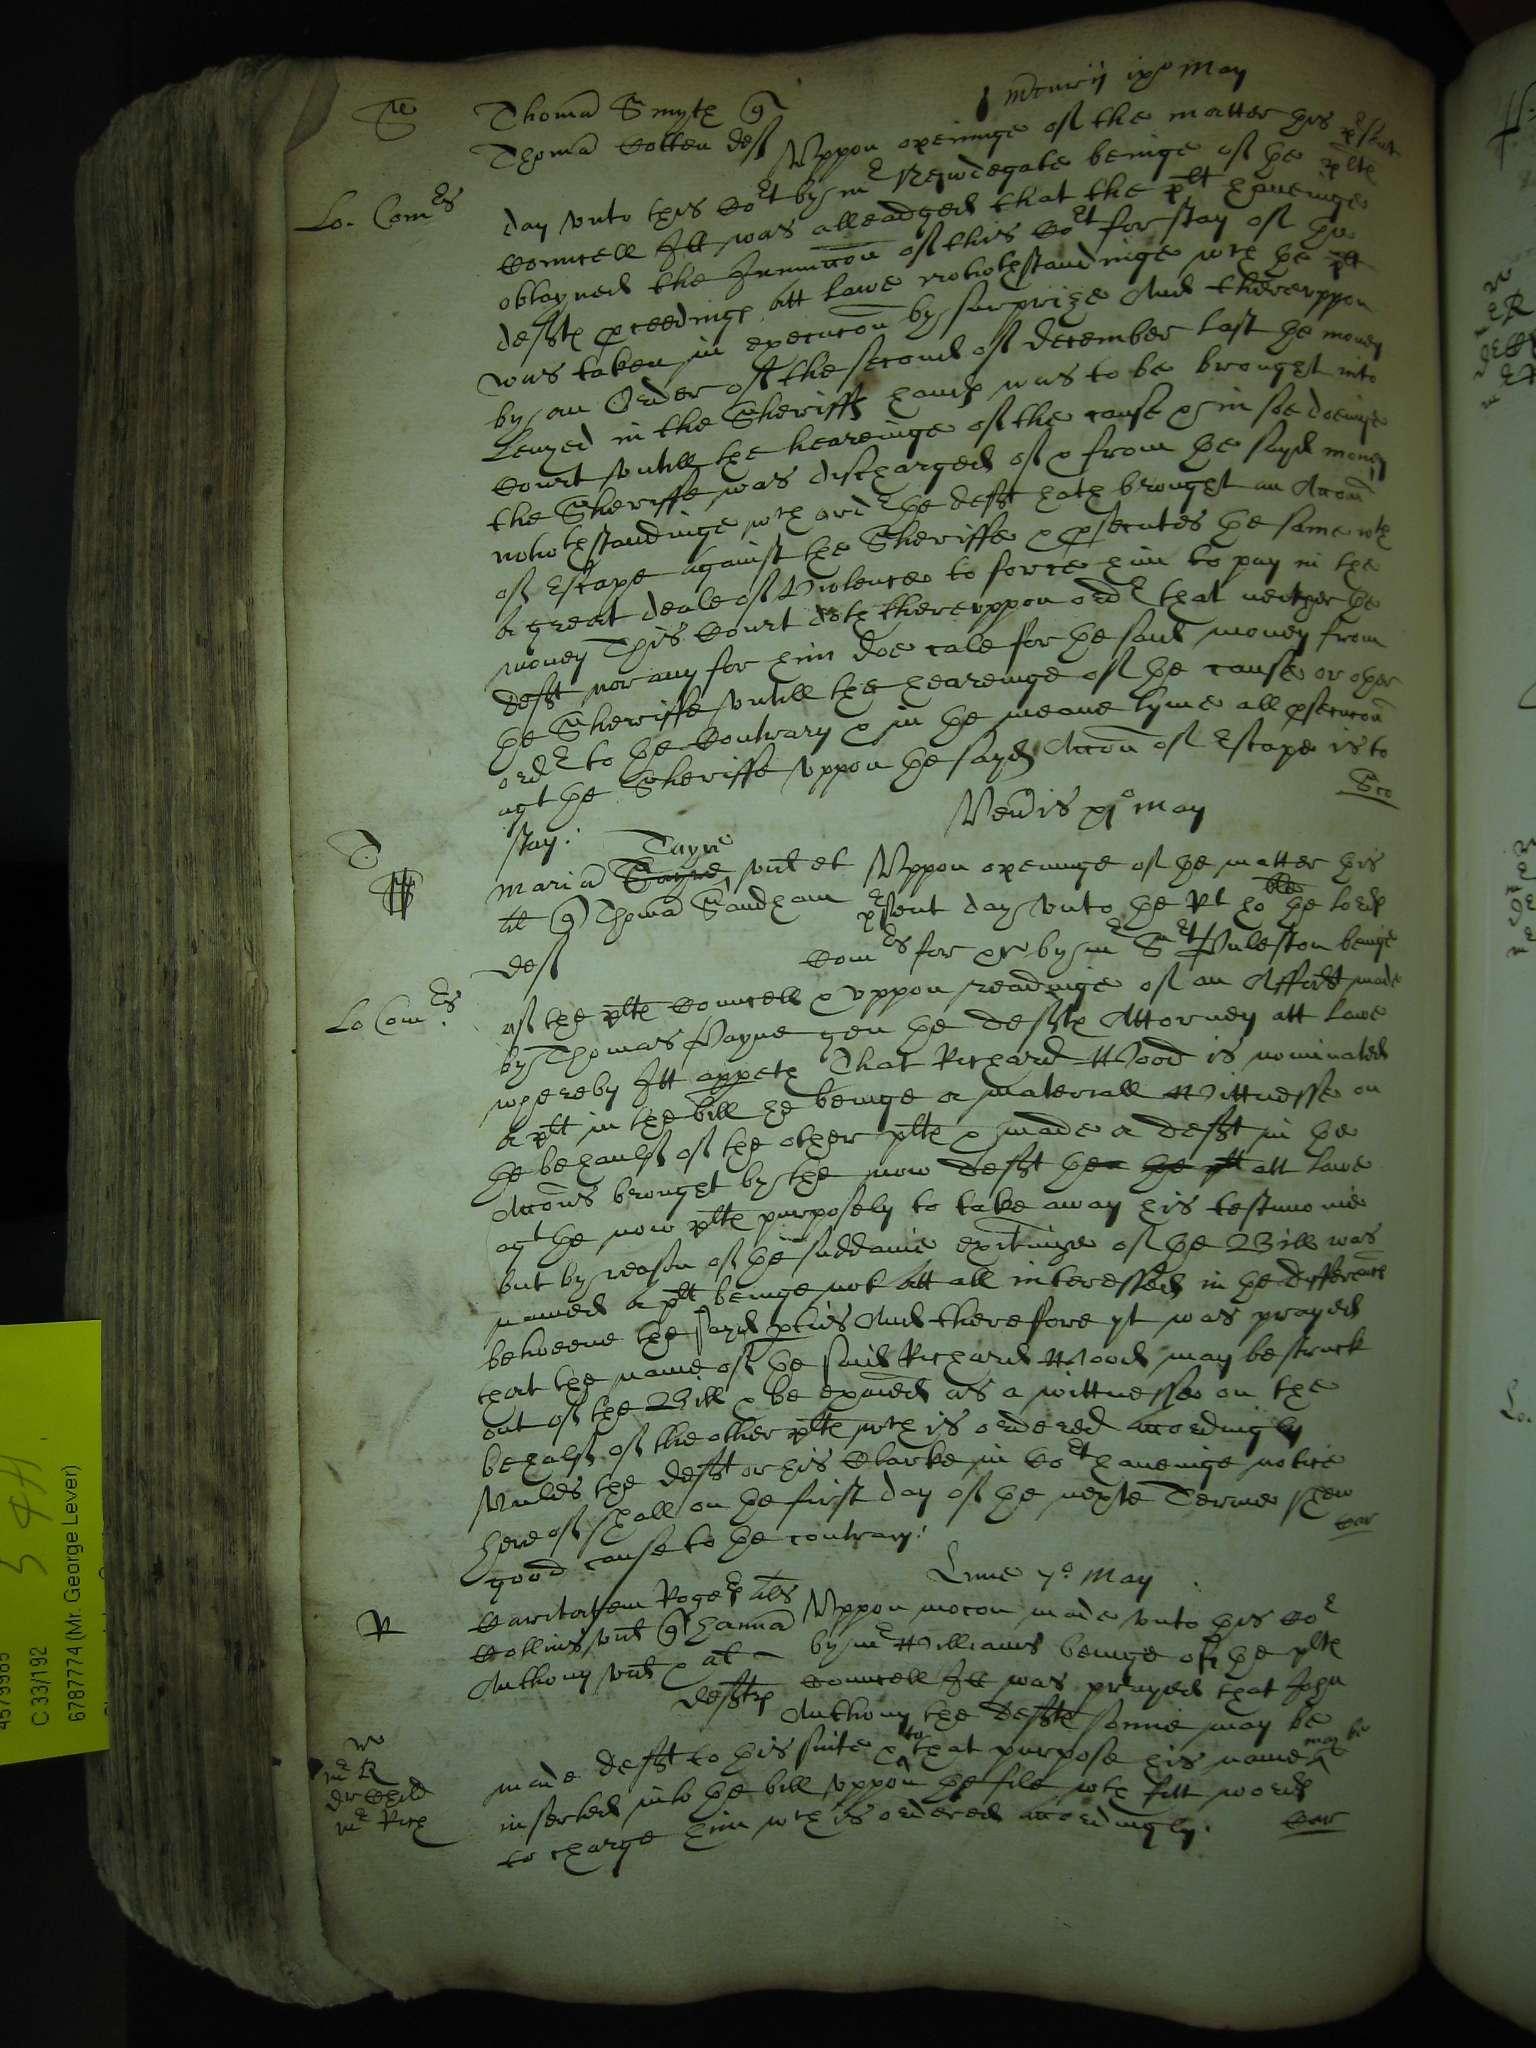 Mercurij ixo May
Sm Thoma Smyth q
Thoma Cotten deft Uppon openinge of the matter this pesent
Lo. Comrs day unto this Cort by mr Newdegate beinge of the plts
Councell Itt was alleadged that the plt haveinge
obtayned the Iniunccon of this Cort for stay of the
defts pceedings att lawe notwthstandinge wch the plt
was taken in execucon by surprize And thereuppon
by an Order of the second of December last the money
Levyed in the Sheriffs hands was to be brought into
Court untill the heareinge of the cause & in soe doeinge
the Sheriffe was discharged of & from the sayd money
notwthstandinge wch order the deft hath brought an Accon
of Escape against the Sheriffe & psecutes the same wth
a great deale of Violence to force him to pay in the
money This Court doth thereuppon order that neither the
deft nor any for him doe call for the said money from
the Sheriffe untill the heareinge of the cause or other
order to the Contrary & in the meane tyme all psecucon
agt the Sheriffe uppon the sayd Accon of Escape is to
stay.
Veneris xjo May
T Maria Sayne Tayne vid et Uppon openinge of the matter this
al q Thoma Sandham pesent day unto the Rt ho: the lords
deft Comrs for by mr Puleston beinge
Lo Comrs of the plts Councell & uppon readinge of an Affidt made
by Thomas Payne gen the defts Attorney att Lawe
whereby Itt appeth That Richard Wood is nominated
a plt in the bill he beinge a materiall Wittnesse on
the behaulf of the other plts & made a deft in the
Accons brought by the now deft the the plt att Lawe
agt the now plts purposely to take away his testimonie
but by reason of the suddaine exhitinge of the Bill was
named a plt beinge not att all interessed in the difference
betweene the sayd pties And therefore yt was prayed
that the name of the said Richard Wood may be struck
out of the Bill & be exaied as a wittnesse on the
behalf of the other plts wch is ordered accordingly
Unles the deft or his Clarke in Cort haveinge notice
hereof shall on the first day of the nexte Terme shew
good cause to the contrary.
Lune 7o May
R Caritatem Roger als Uppon mocon made unto this Cort
Collins vid q hanna by mr Williams beinge of the plts
Anthony vid & al Councell Itt was prayed that John
defts Anthony the defts sonne may be
made deft to this suite & to that purpose his name may be
mr R
mr Rich inserted into the bill uppon the file wth fitt words
to charge him wch is ordered accordingly.
C 33/192
6787774 (Mr. George Lever)